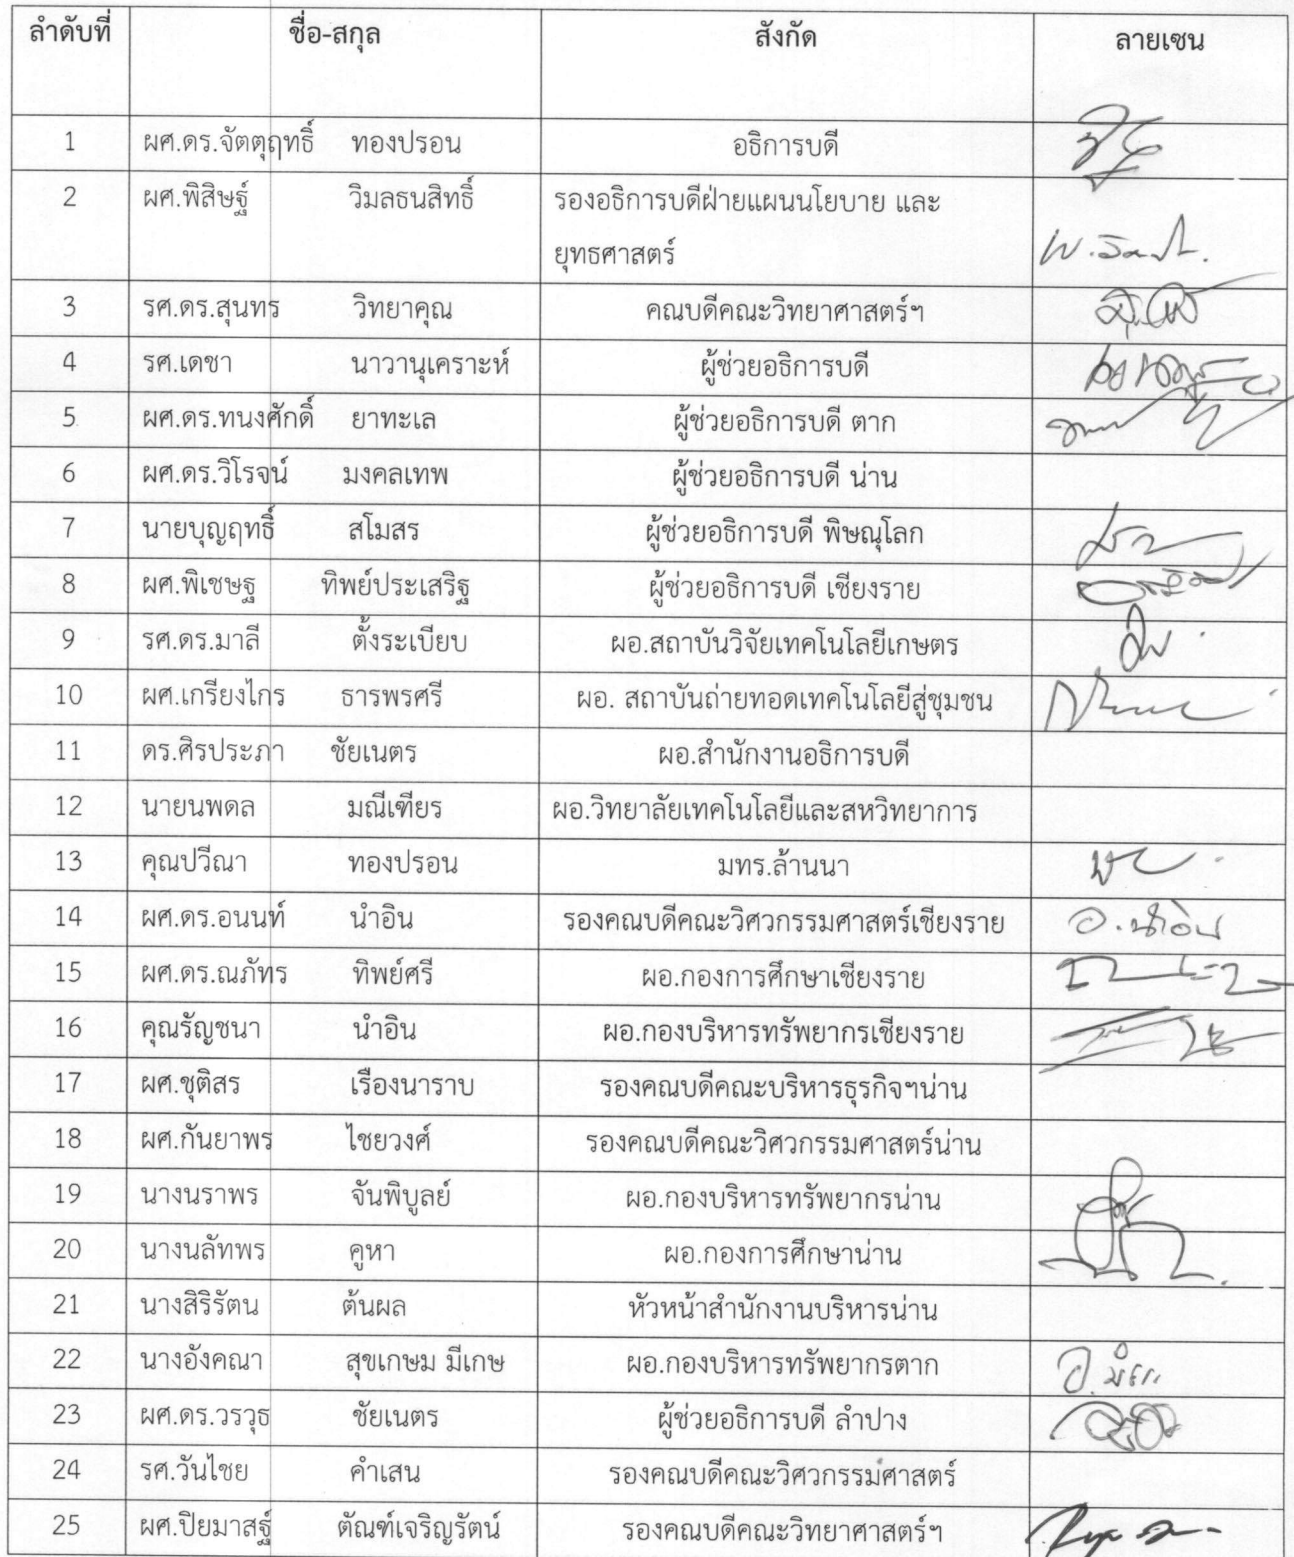 ลำดับที่ ชื่อ-สกุล สังกัด ลายเซน
1 ผศ.ดร.จัตตุฤทธิ์ ทองปรอน อธิการบดี
2 ผศ.พิสิษฐ์ วิมลธนสิทธิ์ รองอธิการบดีฝ่ายแผนนโยบาย และ
ยุทธศาสตร์
3 รศ.ดร.สุนทร วิทยาคุณ คณบดีคณะวิทยาศาสตร์ฯ
4 รศ.เดชา นาวานุเคราะห์ ผู้ช่วยอธิการบดี
5 ผศ.ดร.ทนงศักดิ์ ยาทะเล ผู้ช่วยอธิการบดี ตาก
6 ผศ.ดร.วิโรจน์ มงคลเทพ ผู้ช่วยอธิการบดี น่าน
7 นายบุญฤทธิ์ สโมสร ผู้ช่วยอธิการบดี พิษณุโลก
8 ผศ.พิเชษฐ ทิพย์ประเสริฐ ผู้ช่วยอธิการบดี เชียงราย
9 รศ.ดร.มาลี ตั้งระเบียบ ผอ.สถาบันวิจัยเทคโนโลยีเกษตร
10 ผศ.เกรียงไกร ธารพรศรี ผอ. สถาบันถ่ายทอดเทคโนโลยีสู่ชุมชน
11 ดร.ศิรประภา ชัยเนตร ผอ.สำนักงานอธิการบดี
12 นายนพดล มณีเฑียร ผอ.วิทยาลัยเทคโนโลยีและสหวิทยาการ
13 คุณปวีณา ทองปรอน มทร.ล้านนา
14 ผศ.ดร.อนนท์ นำอิน รองคณบดีคณะวิศวกรรมศาสตร์เชียงราย อ.นำอิน
15 ผศ.ดร.ณภัทร ทิพย์ศรี ผอ.กองการศึกษาเชียงราย
16 คุณรัญชนา นำอิน ผอ.กองบริหารทรัพยากรเชียงราย
17 ผศ.ชุติสร เรืองนาราบ รองคณบดีคณะบริหารธุรกิจฯน่าน
18 ผศ.กันยาพร ไชยวงศ์ รองคณบดีคณะวิศวกรรมศาสตร์น่าน
19 นางนราพร จันพิบูลย์ ผอ.กองบริหารทรัพยากรน่าน
20 นางนลัทพร คูหา ผอ.กองการศึกษาน่าน
21 นางสิริรัตน ต้นผล หัวหน้าสำนักงานบริหารน่าน
22 นางอังคณา สุขเกษม มีเกษ ผอ.กองบริหารทรัพยากรตาก
23 ผศ.ดร.วรวุธ ชัยเนตร ผู้ช่วยอธิการบดี ลำปาง
24 รศ.วันไชย คำเสน รองคณบดีคณะวิศวกรรมศาสตร์
25 ผศ.ปิยมาสฐ์ ตัณฑ์เจริญรัตน์ รองคณบดีคณะวิทยาศาสตร์ฯ